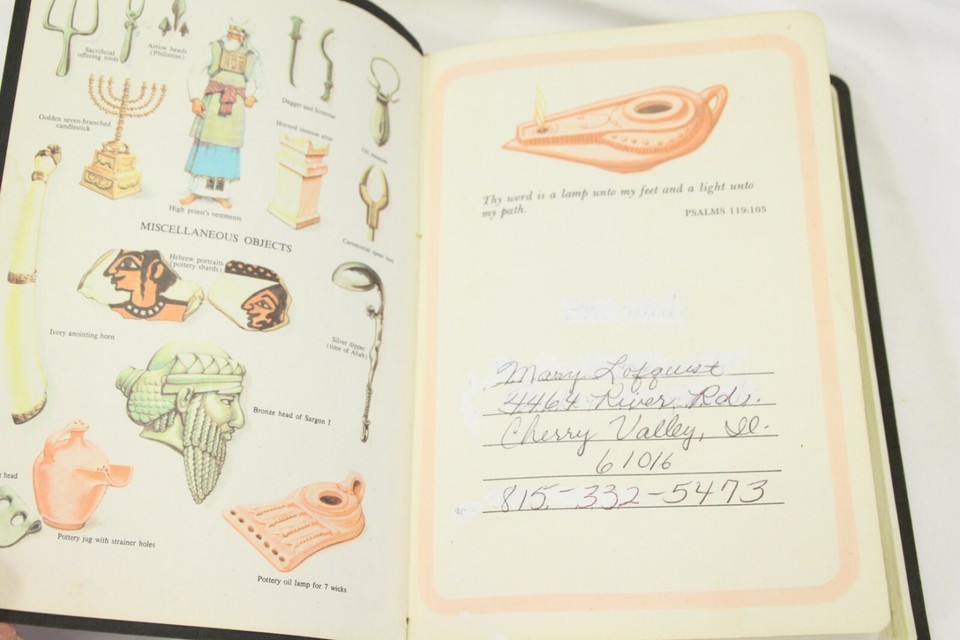 Sacrificial
offering tools
Arrow heads
(Philistine)
Golden seven-branched
candlestick
High priest's vestments
Dagger and
Horned incense altar
Ceremonial
MISCELLANEOUS OBJECTS
Hebrew portraits
(pottery shards)
Ivory anointing horn
Silver dipper
(time of Ahab)
Bronze head of Sargon I
head
Pottery jug with strainer holes
Pottery oil lamp for 7 wicks
Thy word is a lamp unto my feet and a light unto
my path.
PSALMS 119:105
Mary Lofquist
4464 River Rd.
Cherry Valley, Il.
61016
815-332-5473